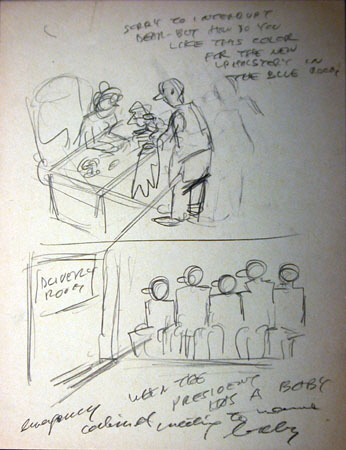 SORRY TO INTERRUPT
DEAR BUT HOW DO YOU
LIKE THIS COLOR
FOR THE NEW
UPHOLSTERY IN
THE BLUE ROOM
DELIVERY
ROOM
WHEN THE
PRESIDENT
HAS A BABY
emergency
cabinet meeting to name
baby